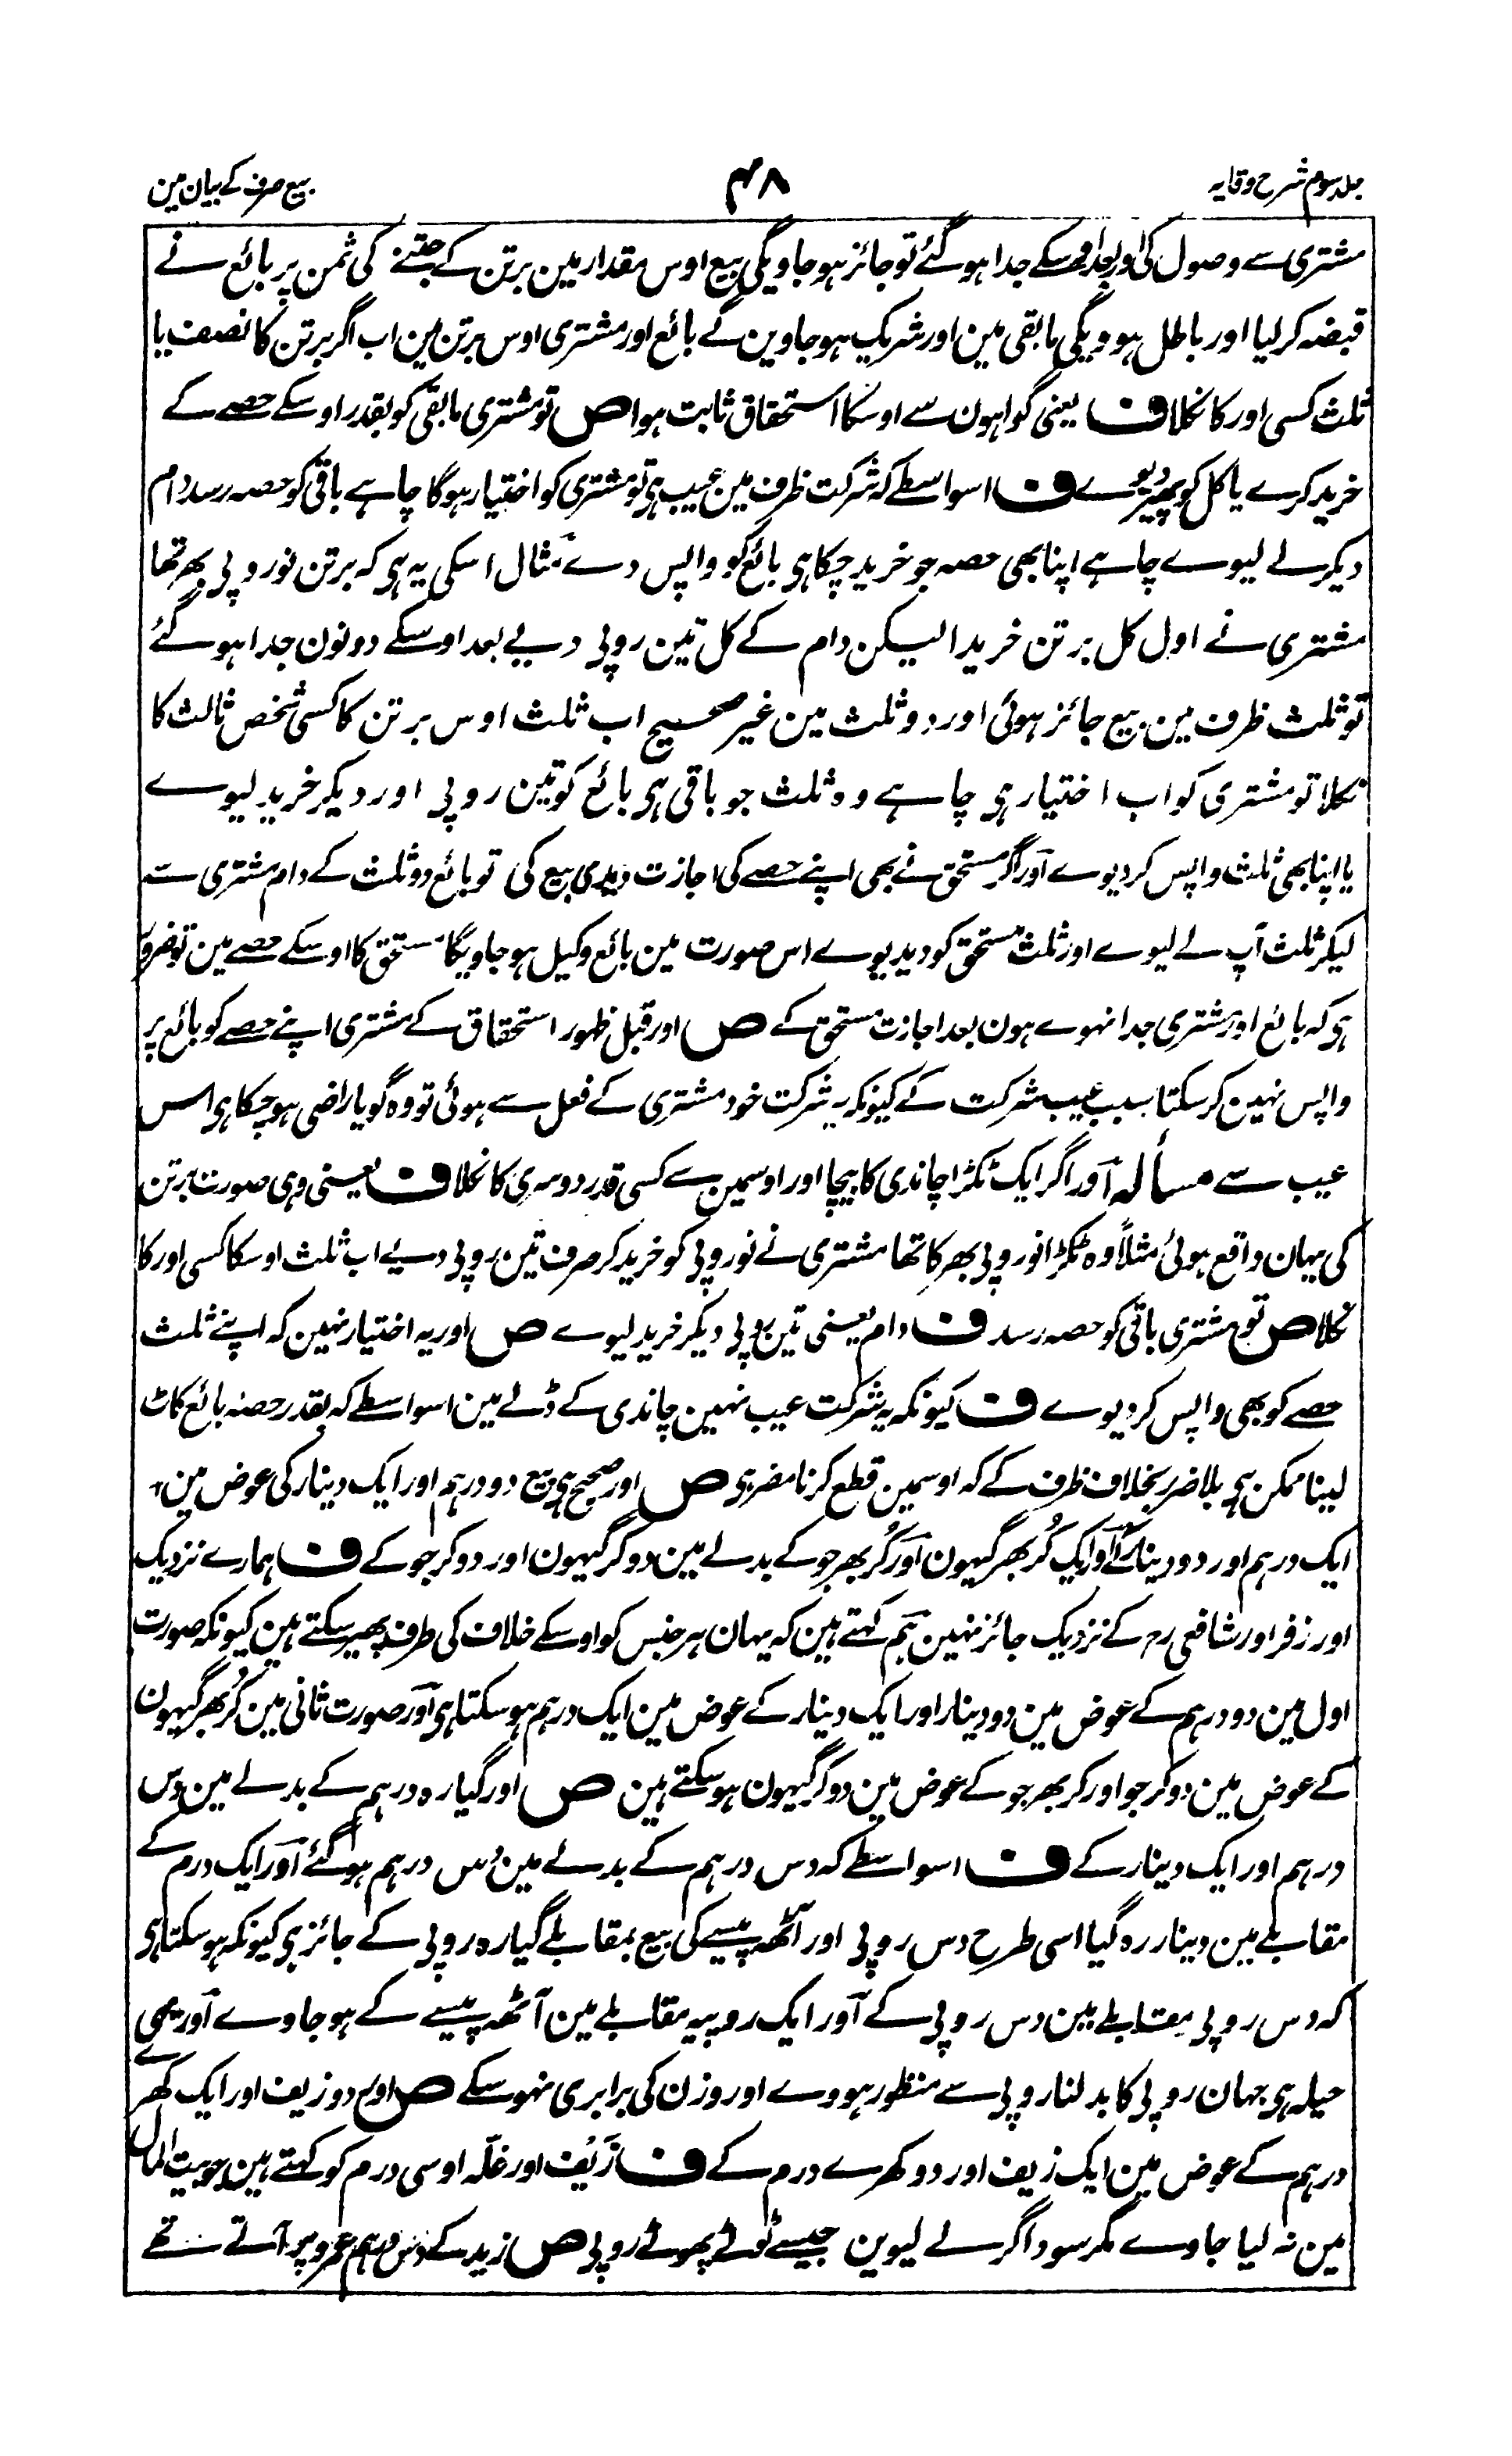 جلد سوم شرح وقایہ
۴۸
بیع صرف کے بیان مین
مشتری سے وصول کی اور بعد اسکے جدا ہو گئے تو جائز ہو جاویگی بیع اوس مقدار مین برتن کے جتنے کی ثمن پر بائع نے
قبضہ کر لیا اور باطل ہوویگی مابقی مین اور شریک ہو جاوین گے بائع اور مشتری اوس برتن مین اب اگر برتن کا نصف یا
ثلث کسی اور کا نکلا ف یعنی گواہون سے اوسکا استحقاق ثابت ہوا ص تو مشتری مابقی کو بقدر اوسکے حصے کے
خرید کرے یا کل کو پھیر دیوے ف اسواسطے کہ شرکت ظرف مین عیب ہی تو مشتری کو اختیار ہوگا چاہے باقی کو حصہ رسد دام
دیکر لے لیوے چاہے اپنا بھی حصہ جو خرید چکا ہی بائع کو واپس دے مثال اسکی یہ ہی کہ برتن نو روپی بھر تھا
مشتری نے اول کل برتن خریدا لیکن دام کے کل تین روپی دیے بعد اوسکے دونون جدا ہو گئے
تو ثلث ظرف مین بیع جائز ہوئی اور دو ثلث مین غیر صحیح اب ثلث اوس برتن کا کسی شخص ثالث کا
نکلا تو مشتری کو اب اختیار ہی چاہے وہ ثلث جو باقی ہی بائع کو تین روپی اور دیکر خرید لیوے
یا اپنا بھی ثلث واپس کر دیوے اور اگر مستحق نے بھی اپنے حصے کی اجازت دیدی بیع کی تو بائع دو ثلث کے دام مشتری سے
لیکر ثلث آپ لے لیوے اور ثلث مستحق کو دیدیوے اس صورت مین بائع وکیل ہو جاویگا مستحق کا اوسکے حصے مین تو ضرور
ہی کہ بائع اور مشتری جدا نہوے ہون بعد اجازت مستحق کے ص اور قبل ظہور استحقاق کے مشتری اپنے حصے کو بائع پر
واپس نہین کر سکتا بسبب عیب شرکت کے کیونکہ یہ شرکت خود مشتری کے فعل سے ہوئی تو وہ گویا راضی ہو چکا ہی اس
عیب سے مسألہ اور اگر ایک ٹکڑا چاندی کا بیچا اور اوسمین سے کسی قدر دوسری کا نکلا ف یعنی وہی صورت برتن
کی یہان واقع ہوئی مثلاً وہ ٹکڑا نو روپی بھر کا تھا مشتری نے نو روپی کو خرید کر صرف تین روپی دیے اب ثلث اوسکا کسی اور کا
نکلا ص تو مشتری باقی کو حصہ رسد ف دام یعنی تین روپی دیکر خرید لیوے ص اور یہ اختیار نہین کہ اپنے ثلث
حصے کو بھی واپس کر دیوے ف کیونکہ یہ شرکت عیب نہین چاندی کے ڈلے مین اسواسطے کہ بقدر حصۂ بائع کاٹ
لینا ممکن ہی بلا ضرر بخلاف ظرف کے کہ اوسمین قطع کرنا مضر ہی ص اور صحیح ہی بیع دو درہم اور ایک دینار کی عوض مین
ایک درہم اور دو دینار کے اور ایک کُر بھر گیہون اور کُر بھر جو کے بدلے مین دو کر گیہون اور دو کر جو کے ف ہمارے نزدیک
اور زفر اور شافعی رح کے نزدیک جائز نہین ہم کہتے ہین کہ یہان ہر جنس کو اوسکے خلاف کی طرف پھیر سکتے ہین کیونکہ صورت
اول مین دو درہم کے عوض مین دو دینار اور ایک دینار کے عوض مین ایک درہم ہو سکتا ہی اور صورت ثانی مین کُر بھر گیہون
کے عوض مین دو کر جو اور کر بھر جو کے عوض مین دو کر گیہون ہو سکتے ہین ص اور گیارہ درہم کے بدلے مین دس
درہم اور ایک دینار کے ف اسواسطے کہ دس درہم کے بدلے مین دس درہم ہو گئے اور ایک درم کے
مقابلے مین دینار رہ گیا اسی طرح دس روپی اور آٹھ پیسے کی بیع بمقابلے گیارہ روپی کے جائز ہی کیونکہ ہو سکتا ہی
کہ دس روپی مقابلے مین دس روپی کے اور ایک روپیہ مقابلے مین آٹھ پیسے کے ہو جاوے اور یہی
حیلہ ہی جہان روپی کا بدلنا روپی سے منظور ہووے اور وزن کی برابری نہو سکے ص اور دو زیف اور ایک کھرے
درہم کے عوض مین ایک زیف اور دو کھرے درم کے ف زیف اور غلّہ اوسی درم کو کہتے ہین جو بیت المال
مین نہ لیا جاوے مگر سوداگر لے لیوین جیسے ٹوٹے پھوٹے روپی ص زید کے دس درہم عمرو پر آتے تھے